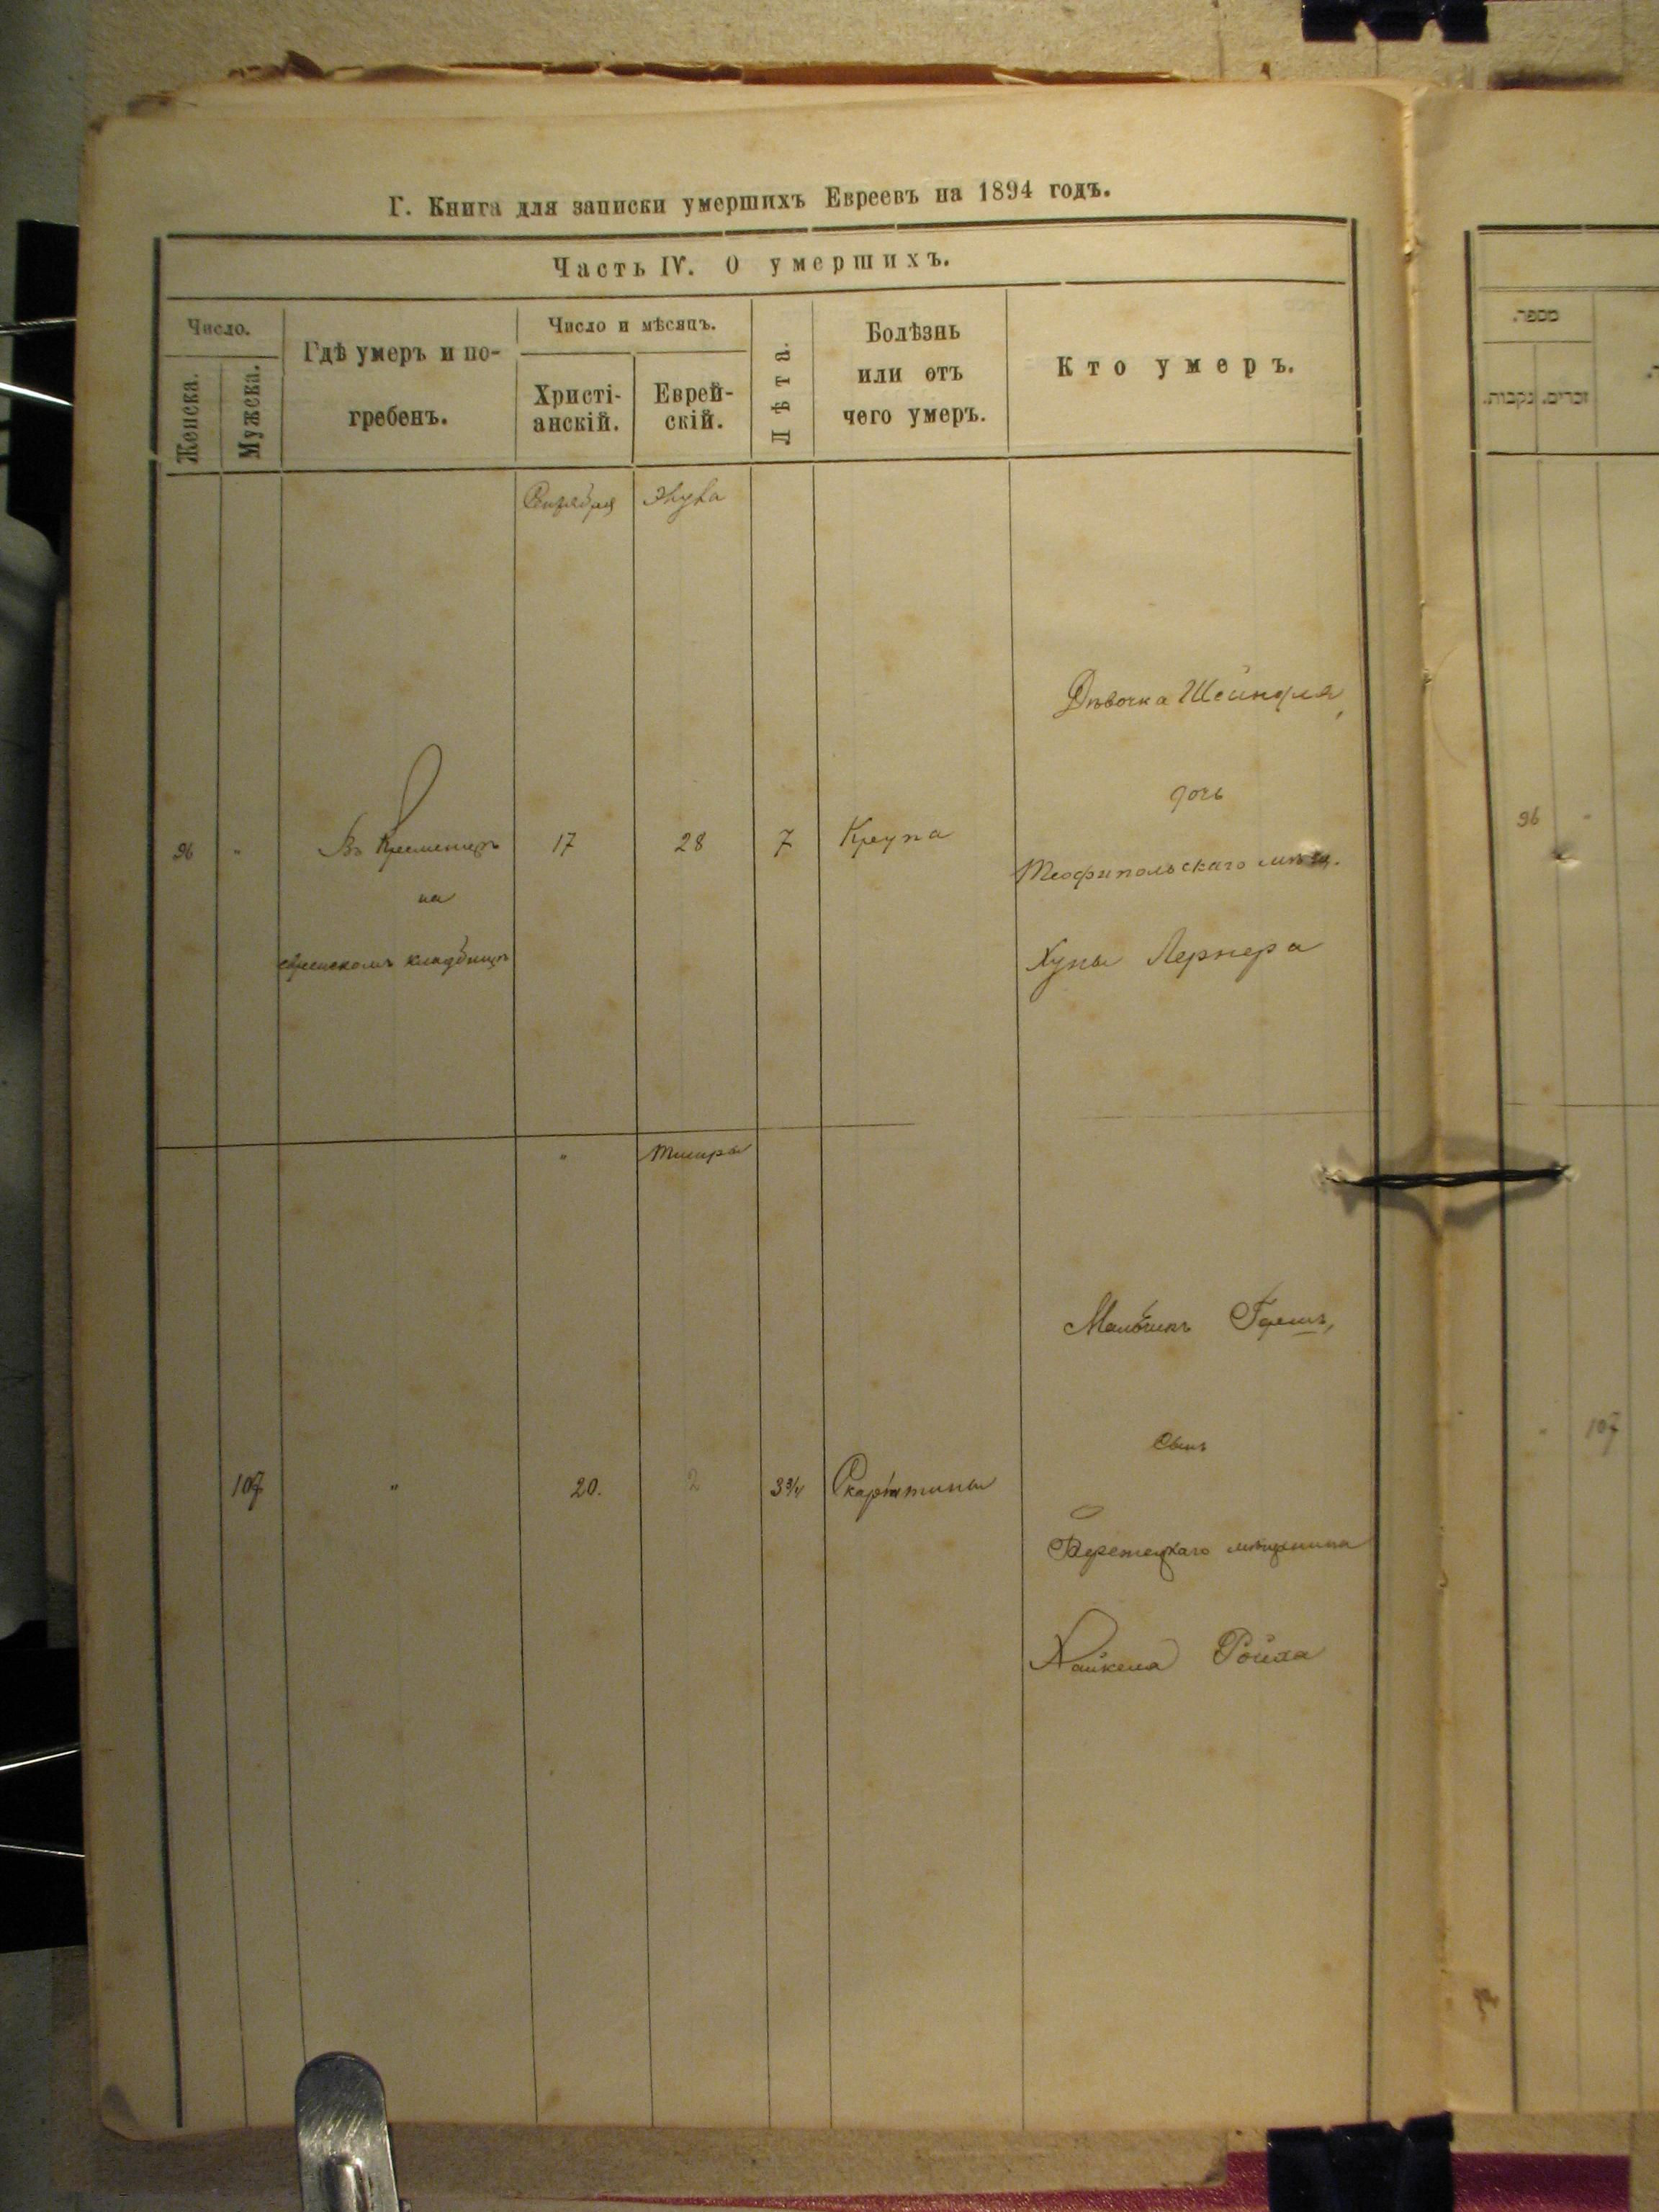 Г. Книга для записки умершихъ Евреевъ на 1894 годъ.
Часть IV. О умершихъ.
Число.
Женска.
Мужска.
Гдѣ умеръ и по-
гребенъ.
Число и мѣсяцъ.
Христі-
анскій.
Еврей-
скій.
Лѣта.
Болѣзнь
или отъ
чего умеръ.
Кто умеръ.
Сентября
Элула
96
"
Въ Кременцѣ
на
еврейскомъ кладбищѣ
17
28
7
Крупа
Дѣвочка Шейндля,
дочь
Теофипольскаго мѣщ.
Хуны Лернера
"
Тишры
107
"
20.
2
3 3/4
Скарлатины
Мальчикъ
сынъ
Бережецкаго мѣщанина
Хайкеля Ройха
מספר.
נקבות.
זכרים.
96
"
"
107